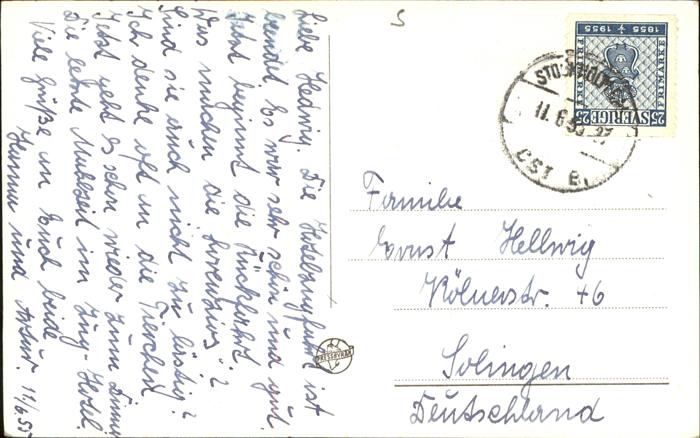 Liebe Hedwig. Die Hotelzugfahrt ist
beendet. Es war sehr schön und gut.
Jetzt beginnt die Rückfahrt.
Was machen die
Sind sie auch nicht zu lästig?
Ich denke oft an die Tierchen
Jetzt geht es schon wieder zum Dinner
Die letzte Mahlzeit im Zug-Hotel.
Viele Grüße an Euch beide
Hanna und Artur. 11/6.55
S
1855 1955
FRIMÄRKE
FRIMÄRKE
25 SVERIGE 25
STOCKHOLM
11.6.55
ÖST B.
PRESSBYRÅN
Familie
Ernst Hellwig
Kölnerstr. 46
Solingen
Deutschland